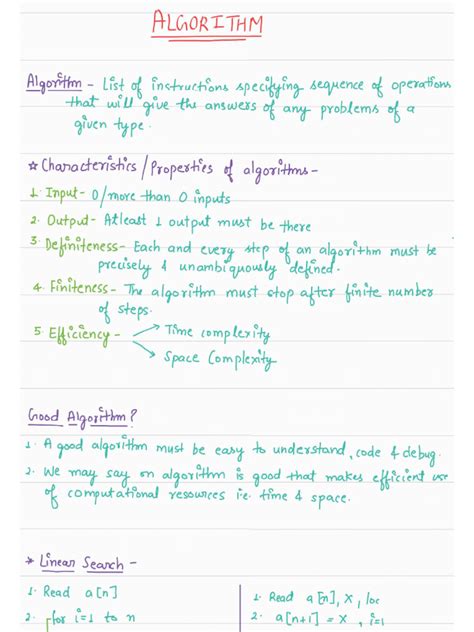 ALGORITHM
Algorithm - List of instructions specifying sequence of operations
that will give the answers of any problems of a
given type.
☆ Characteristics/Properties of algorithms -
1. Input - 0/more than 0 inputs
2. Output - Atleast 1 output must be there
3. Definiteness - Each and every step of an algorithm must be
precisely & unambiquously defined.
4. Finiteness - The algorithm must stop after finite number
of steps.
5. Efficiency - → Time complexity
→ Space Complexity
Good Algorithm?
1. A good algorithm must be easy to understand, code & debug.
2. We may say an algorithm is good that makes efficient use
of computational resources i.e. time & space.
* Linear Search -
1. Read a[n]
2. for i=1 to n
1. Read a[n], X, loc
2. a[n+1] = X, i=1